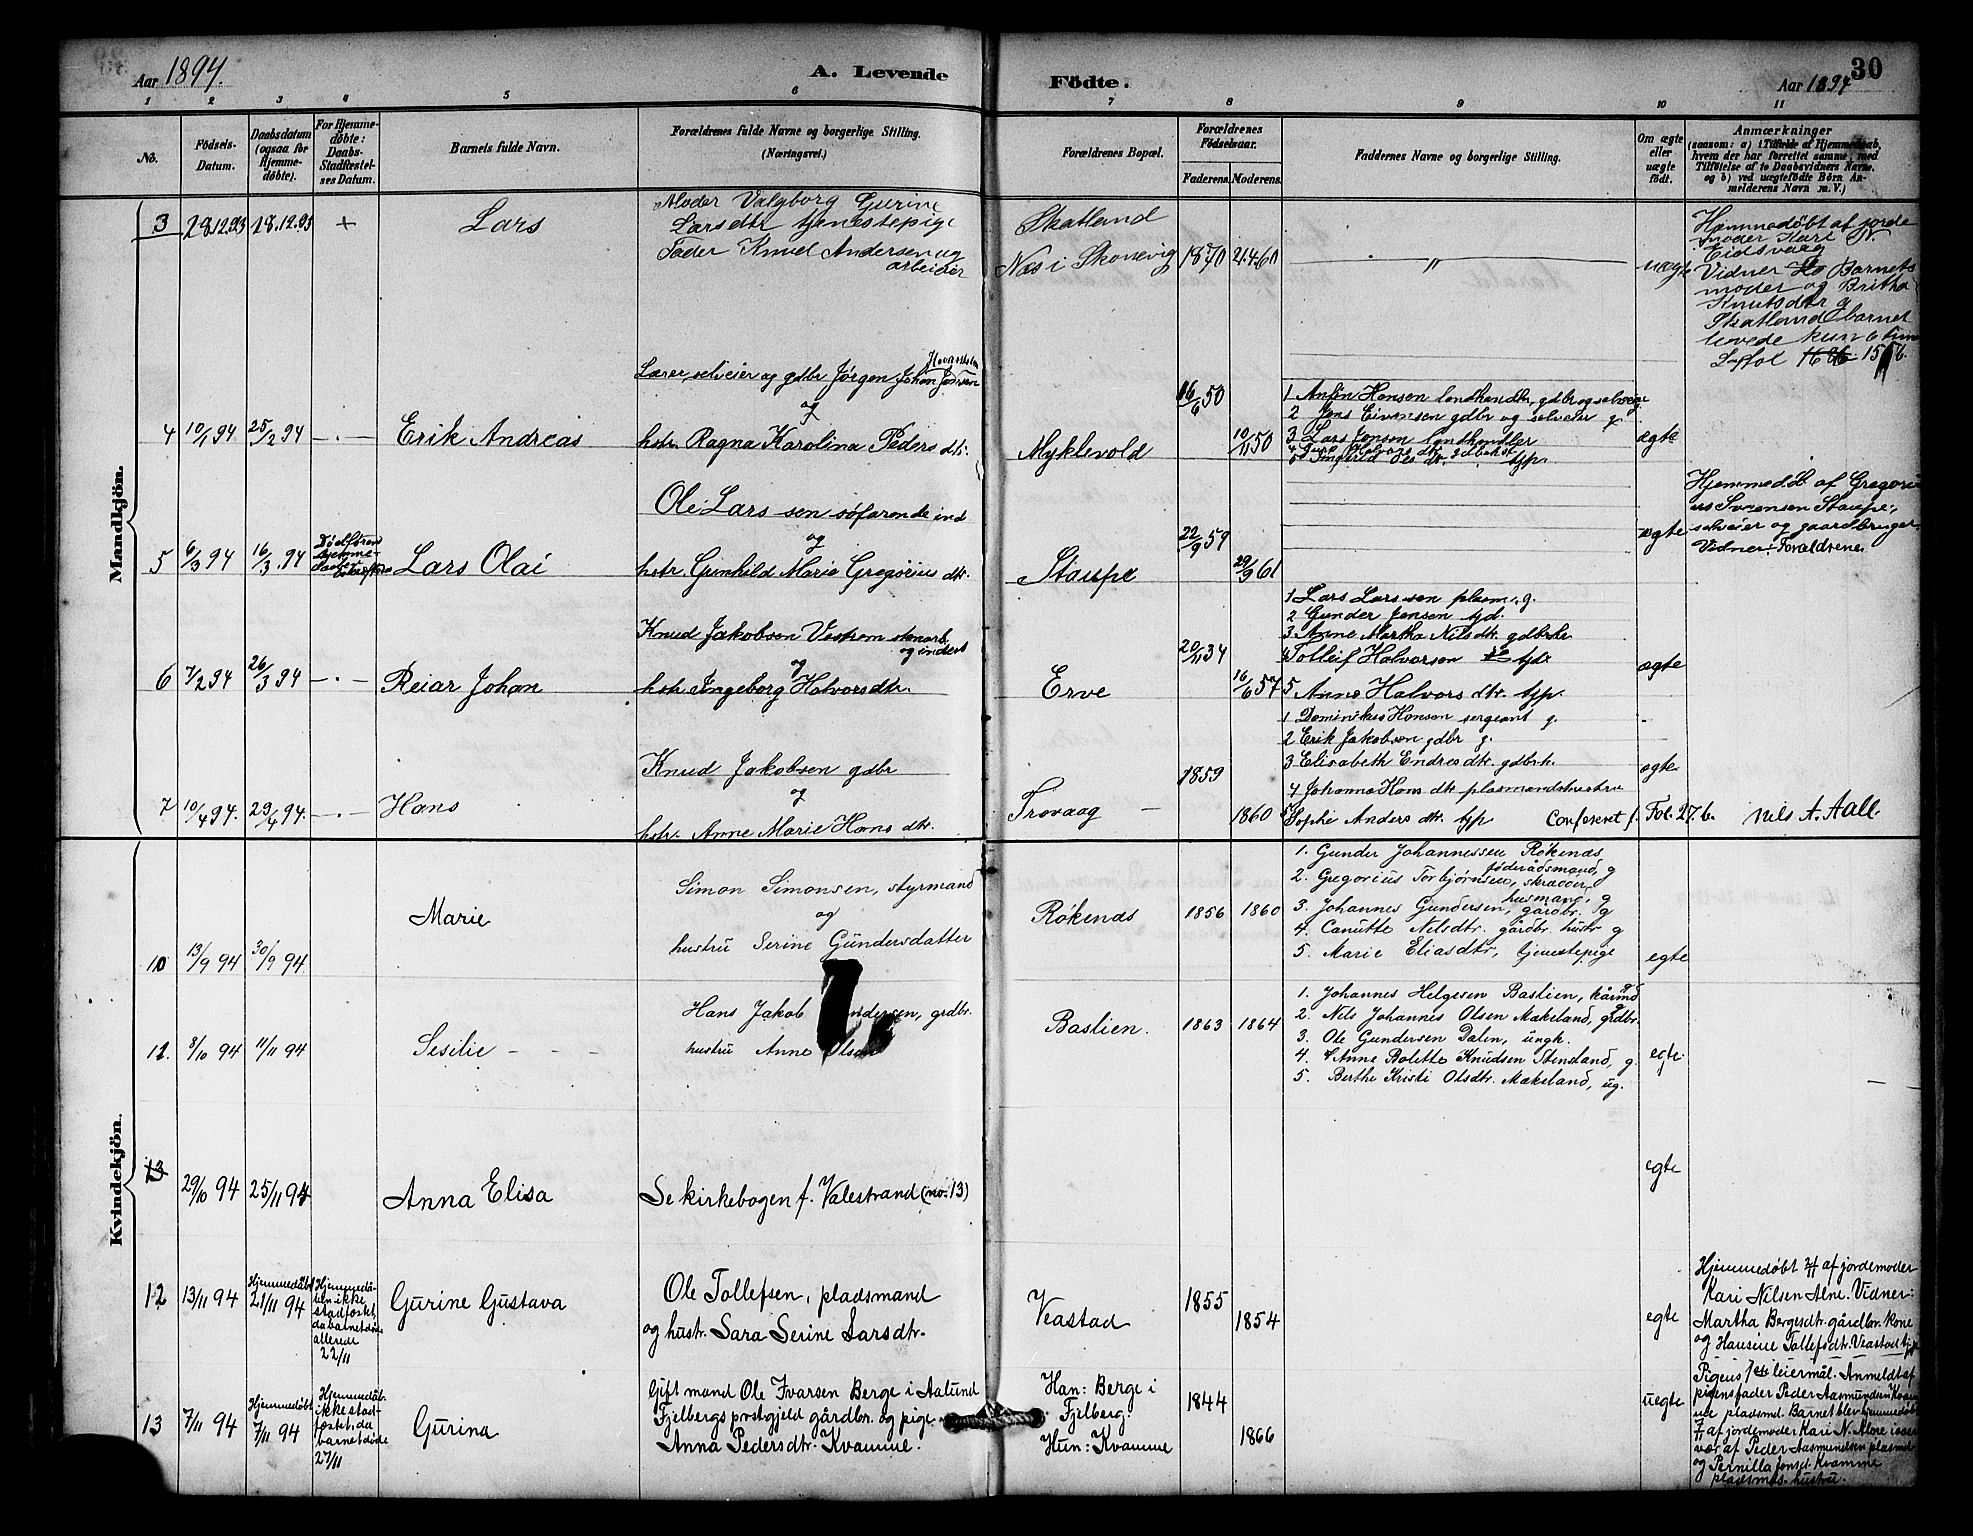 Aar 1894.
A. Levende
Födte.
Aar 1894
30
1 2 3 4 5 6 7 8 9 10 11
No.
Födsels-Datum.
Daabsdatum (ogsaa for Hjemme-döbte).
For Hjemme-döbte: Daabs-Stadfæstel-ses Datum.
Barnets fulde Navn.
Forældrenes fulde Navne og borgerlige Stilling.
(Næringsvei.)
Forældrenes Bopæl.
Forældrenes Födselsaar.
Faderens. Moderens.
Faddernes Navne og borgerlige Stilling.
Om ægte eller uægte födt.
Anmærkninger
(saasom: a) i Tilfælde af Hjemmedaab, hvem der har forrettet samme, med Tilföielse af to Daabsvidners Navne, og b) ved uægtefödte Börn Anmelderens Navn m. V.)
Mandkjön.
3 28.12.93 28.12.93 + Lars
Moder Valgborg Gurine
Larsdtr tjenestepige
Fader Knud Andersen ug
arbeider
Skatland
Næs i Skonevig 1870 21.4.60 " uægte
Hjemmedøbt af jorde
moder Kari N.
Eidsvaag
Vidner Barnets
moder og Britha
Knutsdtr g
Skatland barnet
levede kun 6 tim
4 10/1 94 25/2 94 —.— Erik Andreas
Lærer, selveier og gdbr Jørgen Johan Jansen
og
hstr. Ragna Karolina Peders dtr.
Myklevold 16/6 50 10/11 50
1 Anfin Hansen landhandlr, gdbr og selveier g.
2 Jens Eivensen gdbr og selveier g.
3 Lars Jonsen landhandler
5 Ingerid Ols dtr. tjp.
ægte
5 6/3 94 16/3 94
Lars Olai
Ole Lars sen søfarende ind
og
hstr. Gunhild Marie Gregorius dtr.
Staupe 22/9 59 29/9 61 ægte
Hjemmedøbt af Gregori
us Svensen Staupe,
selveier og gaardbruger
Vidner: Forældrene
6 7/2 94 26/3 94 —.— Reiar Johan
Knud Jakobsen Vestrem stenarb.
og inderst
og
hstr Ingeborg Halvorsdtr.
Erve 20/11 34 16/6 57
1 Lars Larssen plasm. g.
2 Gunder Jensen tjd.
3 Anne Martha Nilsdtr. gdbrhu
4 Tolleif Halvorsen tjdr
5 Anne Halvors dtr. tjp.
ægte
7 10/4 94. 29/4 94. —.— Hans
Knud Jakobsen gdbr
og
hstr. Anne Marie Hans dtr.
Trovaag — 1859 1860
1 Dominikus Hansen sergeant g.
2 Erik Jakobsen gdbr g.
3 Elisabeth Endresdtr. gdbrh.
4 Johanna Hans dtr plasmandshustru
5 Sophie Anders dtr tjp
ægte
Confereret f. Fol. 27.b. Nils A. Aall.
Kvindekjön.
10 13/9 94 30/9 94 Marie
Simon Simonsen, styrmand
og
hustru Serine Gundersdatter
Røkenæs 1856 1860
1. Gunder Johannessen Røkenæs
føderådsmand, g
2. Gregorius Torbjørnsen, skrædder,
husmand, g
3. Johannes Gundersen, gårdbr. g
4. Canutte Nilsdtr. gårdbr. hustr g
5. Marie Eliasdtr, tjenestepige
egte
11. 8/10 94 11/11 94 Sesilie - - -
Hans Jakob Andersen, grdbr.
hustru Anne Olsen
Bastlien. 1863 1864
1. Johannes Helgesen Bastlien, kårmd g
2. Nils Johannes Olsen Mækeland, grdbr.
3. Ole Gundersen Dalen, ungk.
4. Anne Bolette Knudsen Stensland, g.
5. Berthe Kristi Olsdtr. Mækeland, ug.
egte
13 29/10 94 25/11 94 Anna Elisa
Se kirkebogen f. Valestrand (no. 13)
egte
12 13/11 94 Hjemmedåbt 21/11 94
Hjemmedå-
ben ikke
stadfæstet,
da barnet døde
allerede
22/11
Gurine Gustava
Ole Tollefsen, pladsmand
og hustr. Sara Serine Larsdtr.
Veastad 1855 1854 egte
Hjemmedøbt 21/11 af jordemoder
Kari Nilsen Alne. Vidner:
Martha Bergesdtr. gårdbr. kone
og Hansine Tollefsdtr. Veastad
13 7/11 94 Hjemmedøbt 7/11 94
Hjemmedåb.
ikke stad-
fæstet, da
barnet døde
27/11
Gurina
Gift mand Ole Ivarsen Berge i Aalund
Fjelbergs prestgjeld gårdbr. og pige
Anna Pedersdtr. Kvamme.
Han: Berge i
Fjelberg.
Hun: Kvamme
1844 1866 uegte
Pigens 1ste leiermål. Anmeldt af
pigens fader Peder Aasmundsen Kvam
me pladsmd. Barnet blev hjemmedøbt
7/11 af jordemoder Kari N. Alne i over
vær af Peder Aasmundsen pladsmd
og Pernilla Jonsd. Kvamme
pladsmds. hustru.